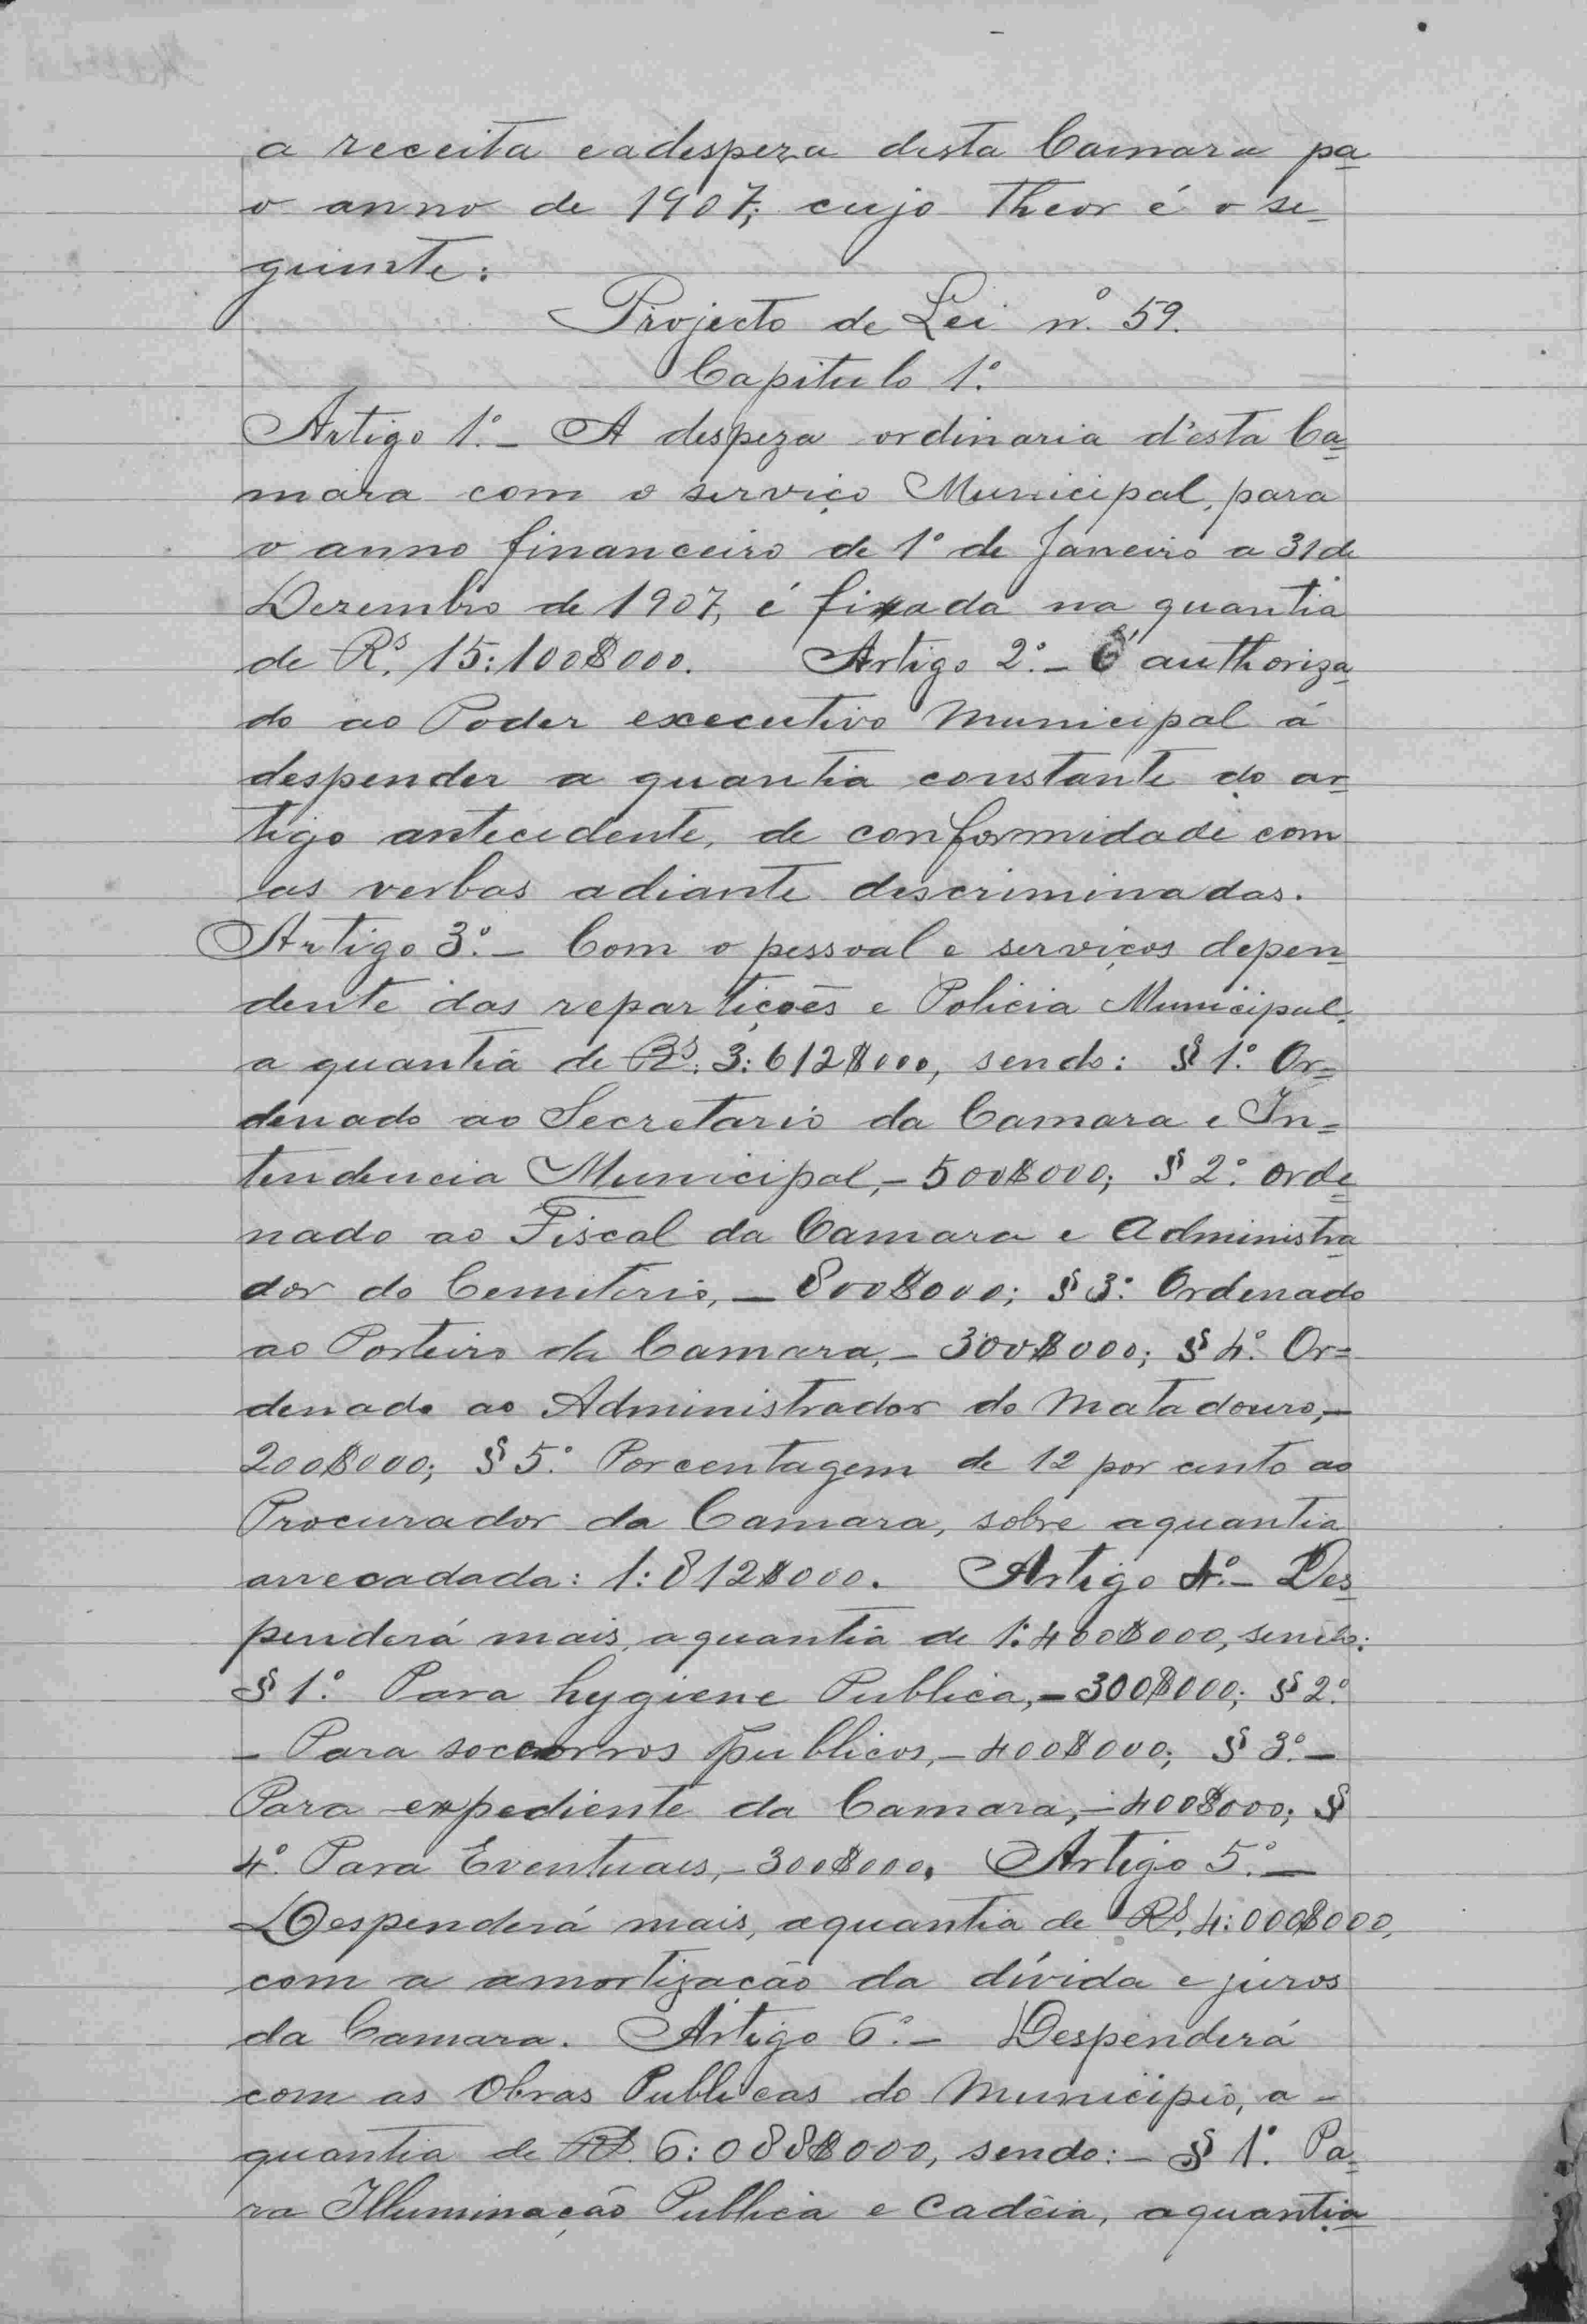 a receita e a despeza desta Camara pa
o anno de 1907; cujo theor é o se
guinte:
Projecto de Lei nº 59.
Capitulo 1º.
Artigo 1º. - A despeza ordinaria d'esta Ca=
mara com o serviço Municipal, para
o anno financeiro de 1º de Janeiro a 31 de
Dezembro de 1907, é fixada na quantia
de Rs. 15:100$000. Artigo 2º. - É authoriza
do ao Poder executivo Municipal á
despender a quantia constante do ar=
tigo antecedente, de conformidade com
as verbas adiante descriminadas.
Artigo 3º. - Com o pessoal e serviços depen
dente das repartições e Policia Municipal.
a quantia de Rs. 3:612$000, sendo: § 1º. Or=
denado ao Secretario da Camara e In=
tendencia Municipal, - 500$000; § 2º. orde=
nado ao Fiscal da Camara e Administra
dor do Cemiterio, - 800$000; § 3º. Ordenado
ao Porteiro da Camara, - 300$000; § 4º. Or=
denado ao Administrador do Matadouro, -
200$000; § 5º. Porcentagem de 12 por cento ao
Procurador da Camara, sobre a quantia
arrecadada: 1:812$000. Artigo 4º. - Des
penderá mais, a quantia de 1:400$000, sendo:
§ 1º. Para hygiene Publica, - 300$000; § 2º.
- Para soccorros publicos, - 400$000; § 3º. -
Para expediente da Camara, - 400$000; §
4º. Para Eventuaes, - 300$000. Artigo 5º. -
Despenderá mais, a quantia de Rs. 4:000$000,
com a amortização da dívida e juros
da Camara. Artigo 6º. - Despenderá
com as Obras Publicas do Municipio, a -
quantia de Rs. 6:088$000, sendo: - § 1º. Pa=
ra Illuminação Publica e Cadêia, a quantia